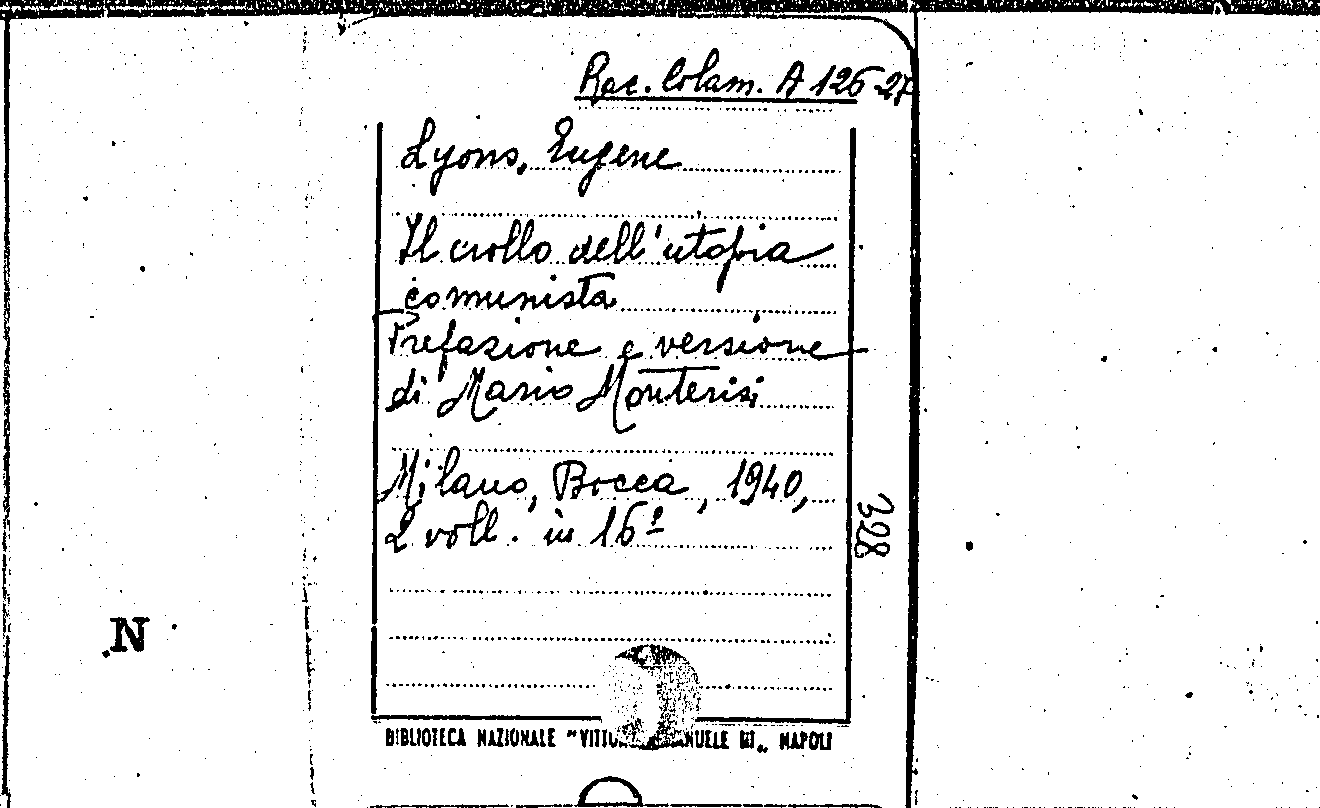 Rac. Colam. A 126-27
Lyons, Eugene
Il crollo dell'utopia
comunista
Prefazione e versione
di Mario Monterisi
Milano, Bocca, 1940,
2 voll. in 16º
398
N
BIBLIOTECA NAZIONALE "VITTO ANUELE III„ NAPOLI